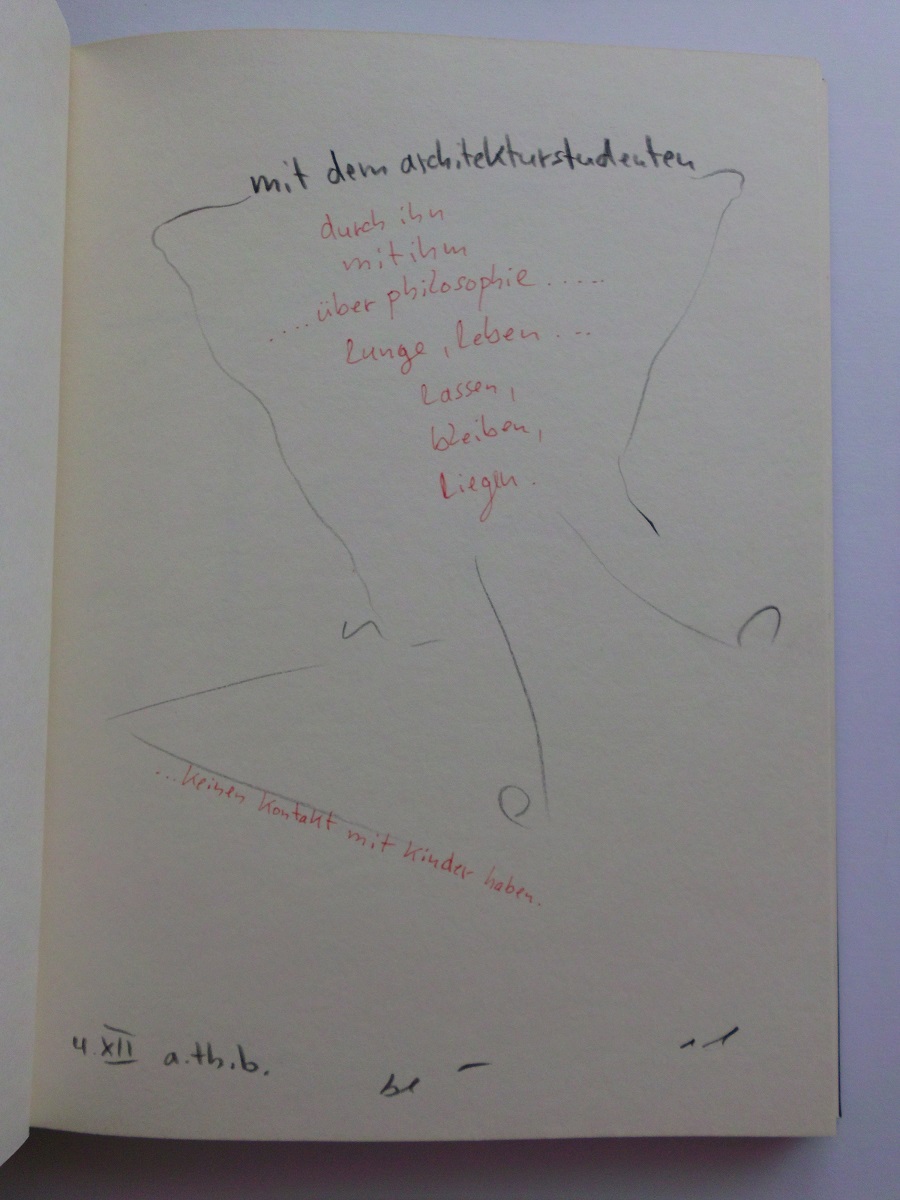 mit dem architekturstudenten
durch ihn
mit ihm
....über philosophie.....
lunge, leben ...
lassen,
bleiben,
liegen.
...keinen kontakt mit kinder haben.
4.XII a.th.b.